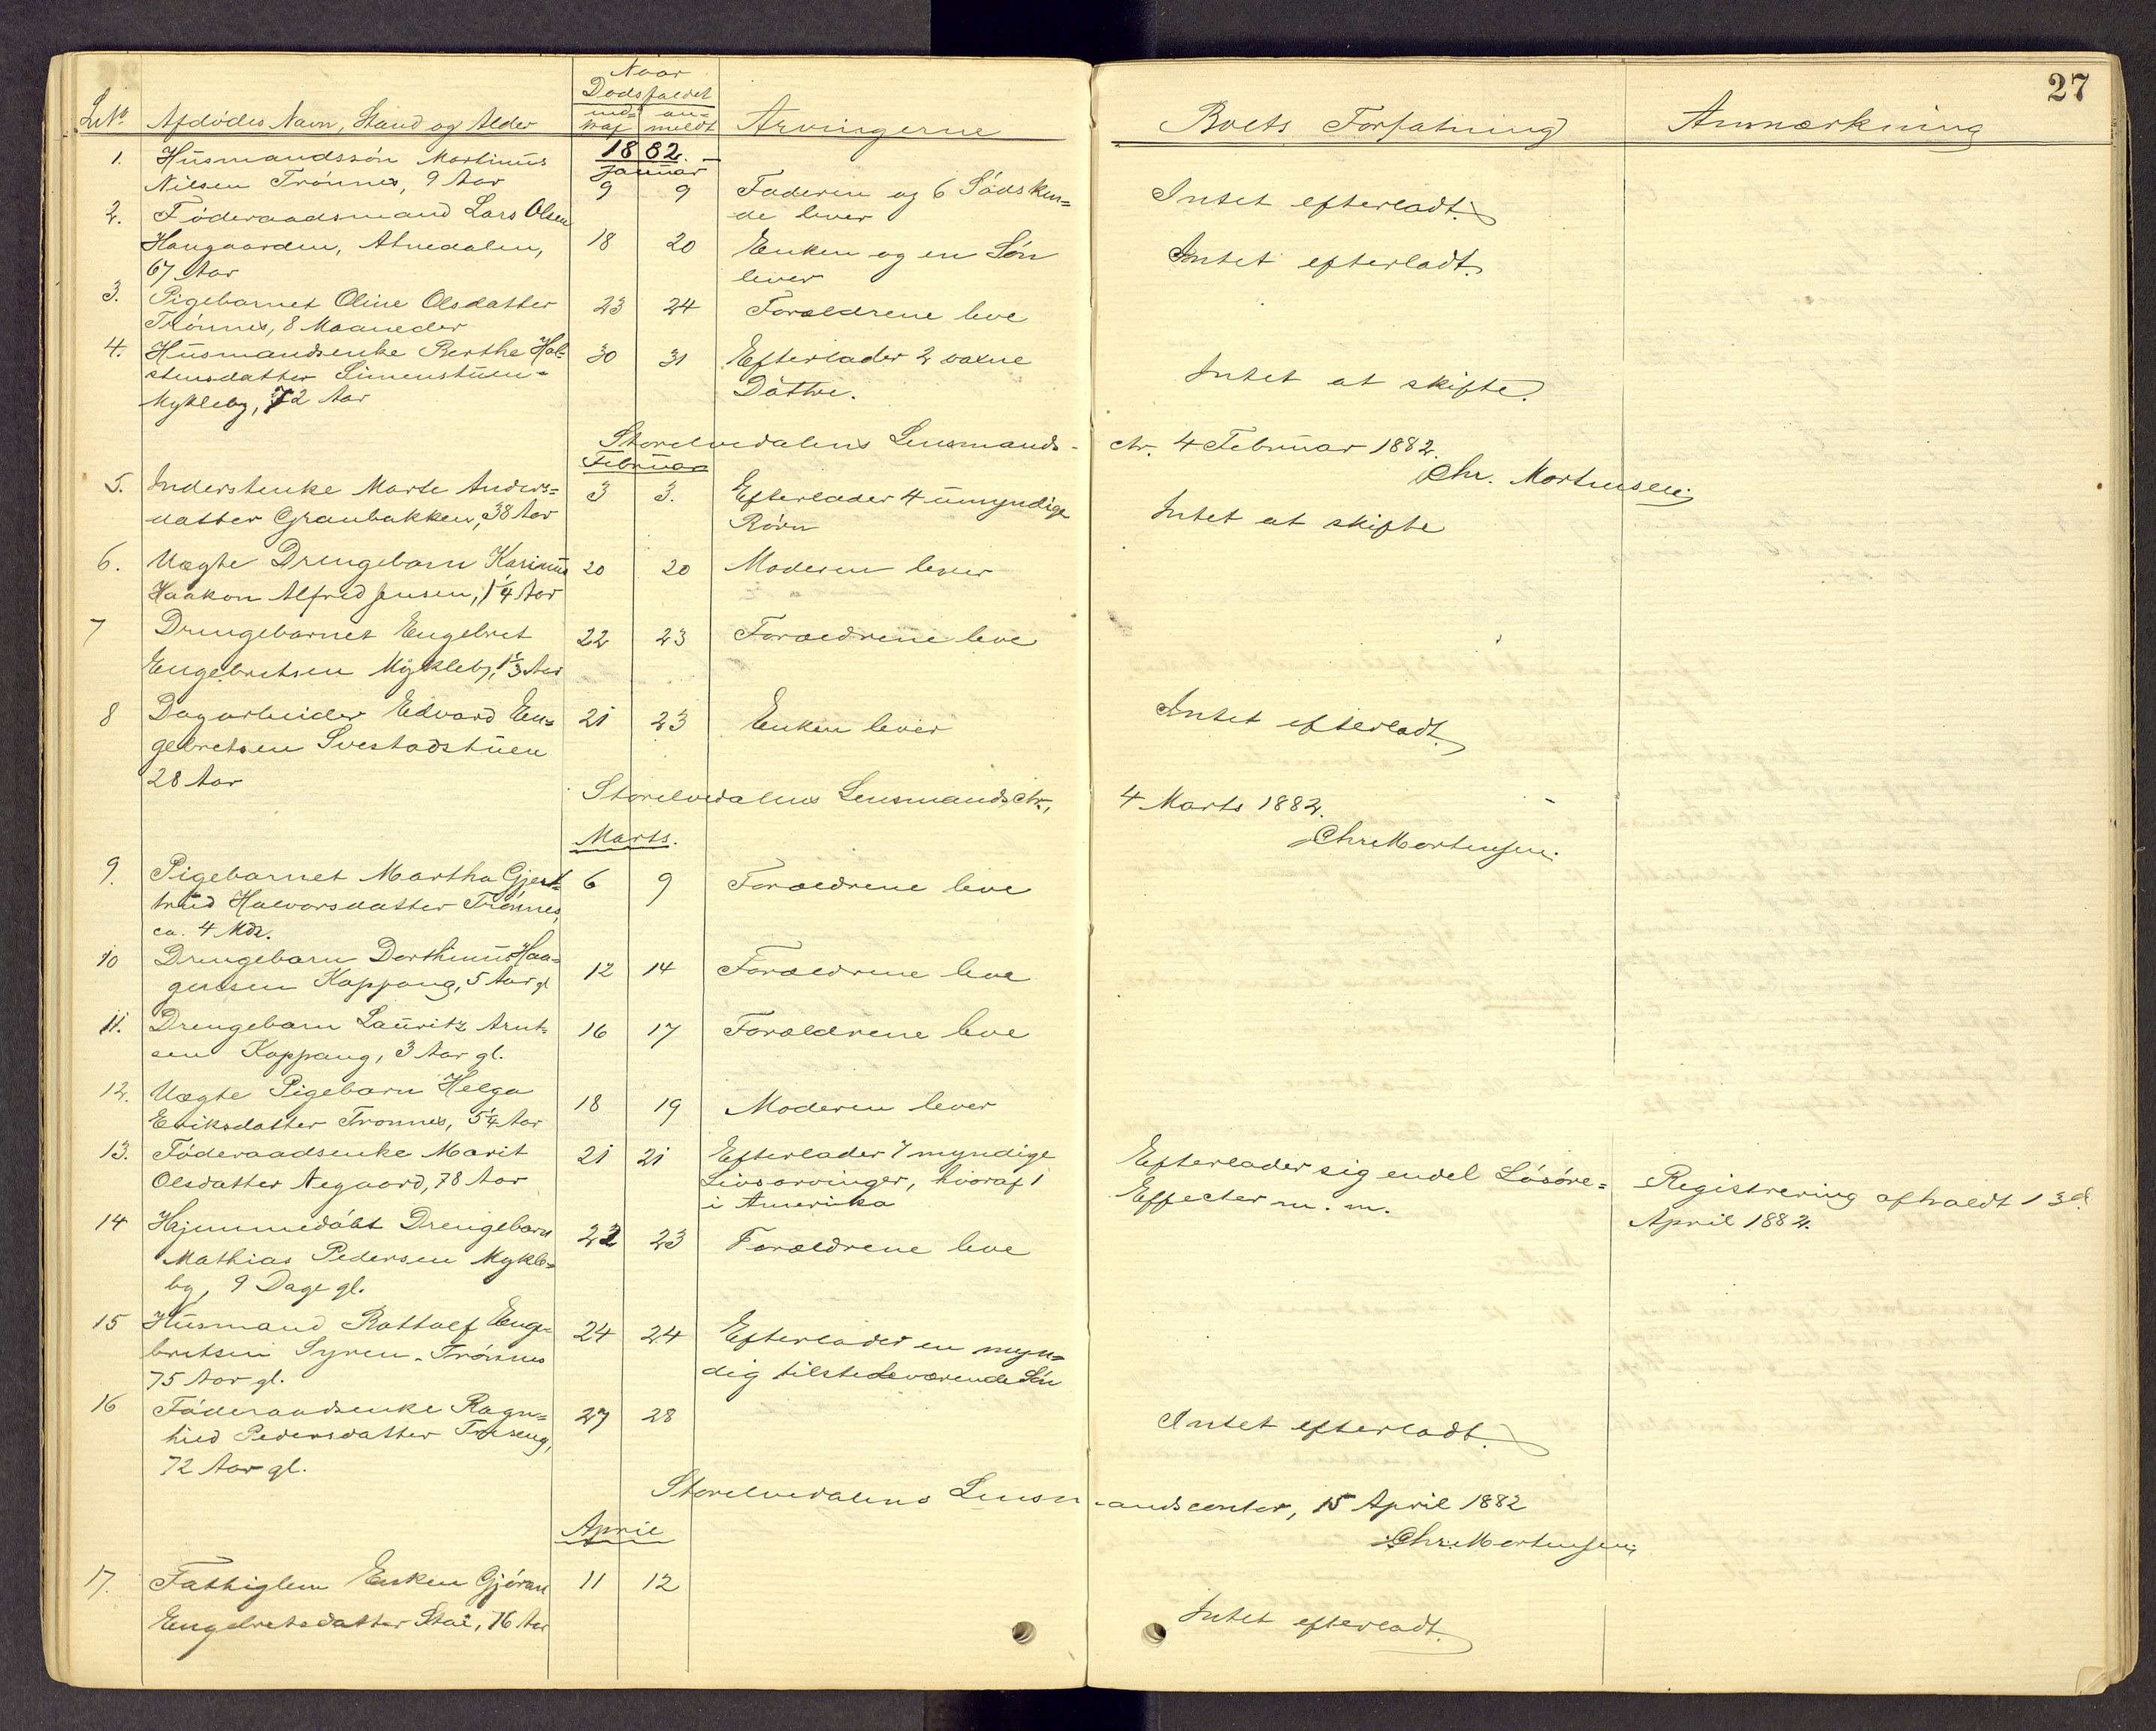 27
Naar
Dødsfaldet
LNo. Afdødes Navn, Stand og Alder ind- an- Arvingerne Boets Forfatning Anmærkning
traf meldt
1882.
Januar
1. Husmandssøn Martinus
Nilsen Trønnes, 9 Aar 9 9 Faderen og 6 Sødsken=
de lever Intet efterladt.
2. Føderaadsmand Lars Olsen
Haugaarden, Atnedalen, 18 20 Enken og en Søn Intet efterladt.
67 Aar lever
3. Pigebarnet Oline Olsdatter 23 24 Forældrene leve
Trønnes, 8 Maaneder
4. Husmandsenke Berthe Hal= 30 31 Efterlader 2 voxne Intet at skifte.
stensdatter Simenstuen- Døttre.
Mykleby, 72 Aar
Storelvedalens Lensmands- ctr. 4 Februar 1882.
Chr. Mortensen
Februar
5. Inderstenke Marte Anders= 3 3. Efterlader 4 umyndige Intet at skifte
datter Granbakken, 38 Aar Børn
6. Uægte Drengebarn Karinus 20 20 Moderen lever
Haakon Alfred Jensen, 1 1/4 Aar
7 Drengebarnet Engebret 22 23 Forældrene leve
Engebretsen Mykleby, 1 1/3 Aar
8 Dagarbeider Edvard En= 21 23 Enken lever Intet efterladt.
gebretsen Svestadstuen
28 Aar
Storelvedalens Lensmandsctr., 4 Marts 1882.
Chr. Mortensen.
Marts.
9. Pigebarnet Martha Gjert= 6 9 Forældrene leve
trud Halvorsdatter Trønnes,
ca. 4 Mdr.
10 Drengebarn Dorthinus Haa= 12 14 Forældrene leve
gensen Koppang, 5 Aar gl
11. Drengebarn Lauritz Arnt= 16 17 Forældrene leve
sen Koppang, 3 Aar gl.
12. Uægte Pigebarn Helga 18 19 Moderen lever
Eriksdatter Trønnes, 5 1/4 Aar
13. Føderaadsenke Marit 21 21 Efterlader 7 myndige Efterlader sig endel Løsøre= Registrering afholdt 13d
Olsdatter Negaard, 78 Aar Livsarvinger, hvoraf 1 Effecter m. m. April 1882.
i Amerika
14 Hjemmedøbt Drengebarn 22 23 Forældrene leve
Mathias Pedersen Mykle=
by, 9 Dage gl.
15 Husmand Rottolf Enge= 24 24 Efterlader en myn=
bretsen Syren-Trønnes dig tilstedeværende Søn
75 Aar gl.
16 Føderaadsenke Ragn= 27 28 Intet efterladt.
hild Pedersdatter
72 Aar gl.
Storelvedalens Lensmandscontor, 15 April 1882
Chr. Mortensen.
April
17. Fattiglem Enken Gjøran 11 12 Intet efterladt.
Engebretsdatter Stai, 76 Aar